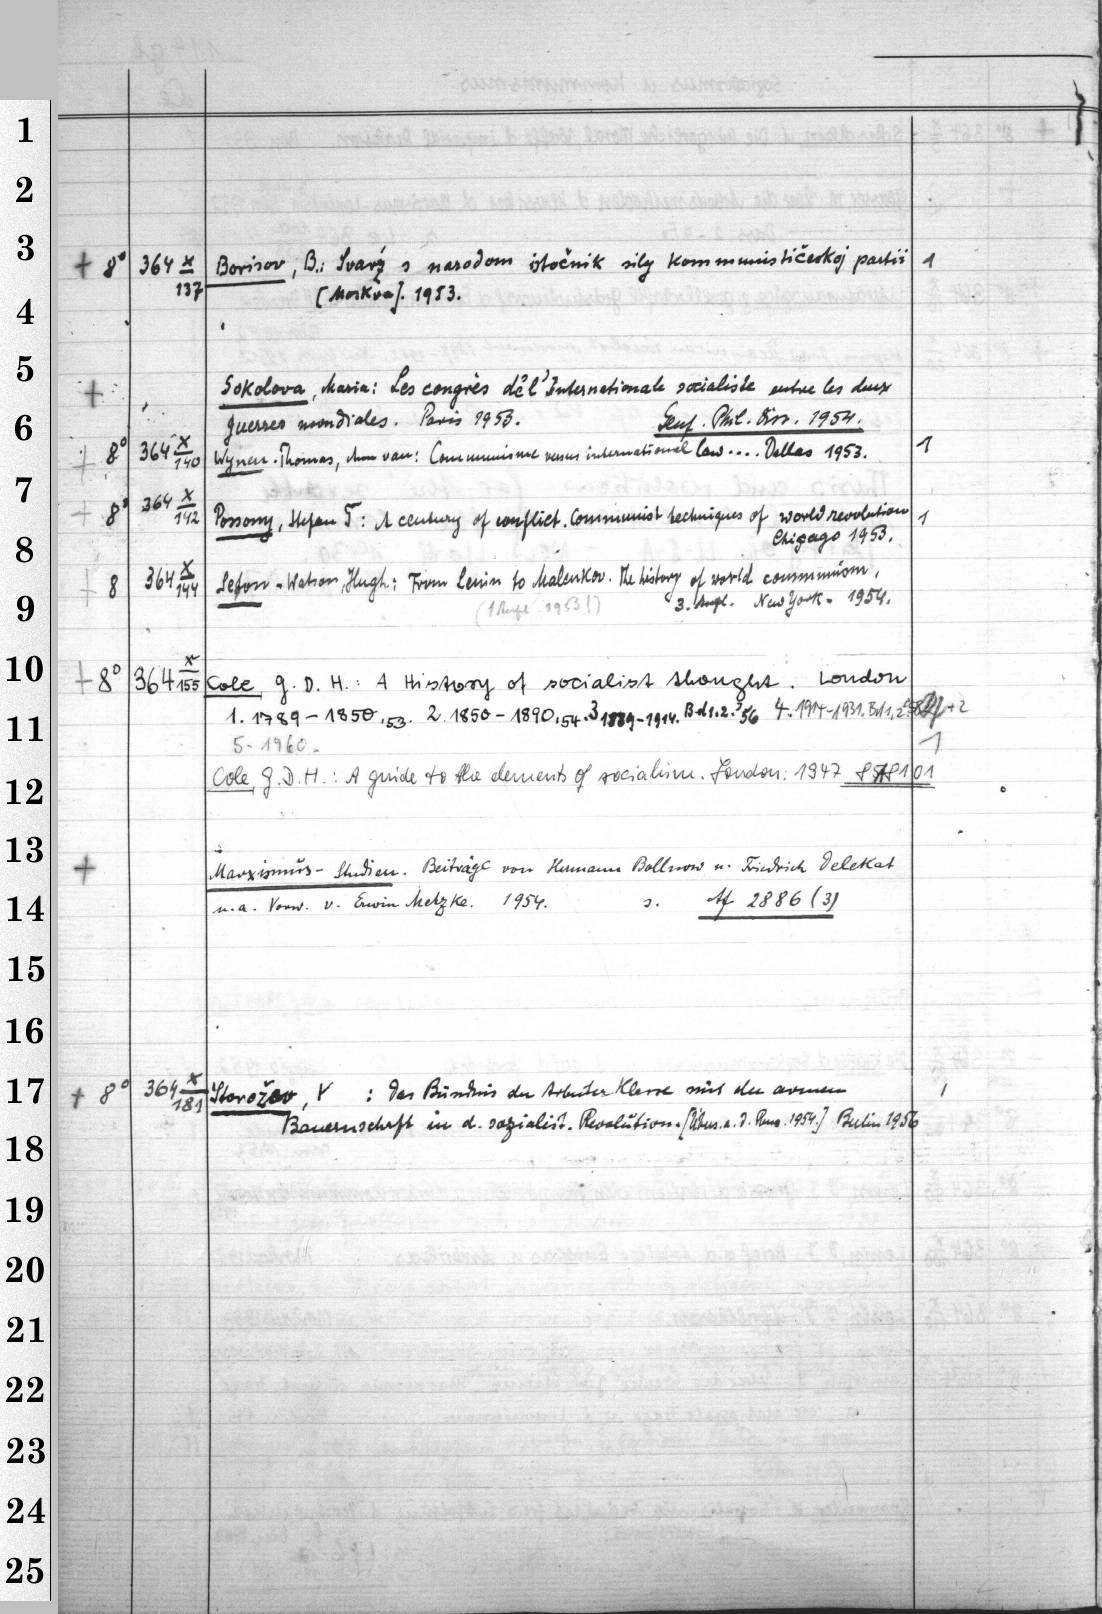 1
2
3 + 8° 364 x Borisov, B.: Svarz s narodom istočnik sily kommunističeskoj partii 1
137 [Moskva]. 1953.
4
5 + Sokolova, Maria: Les congrès de l'Internationale socialiste entre les deux
6 guerres mondiales. Paris 1953. Genf. Phil. Diss. 1954.
+ 8° 364 x/140 Wynen. Thomas, van: Communisme versus international law.... Dallas 1953. 1
7 + 8° 364 x/142 Possony, Stefan T: A century of conflict. Communist techniques of world revolution 1
8 Chigago 1953.
+ 8 364 x/144 Seton-Watson, Hugh: From Lenin to Malenkov. The history of world communism,
9 (1 Aufl. 1953!) 3. Aufl. New York. 1954.
10 + 8° 364 x/155 Cole, G. D. H.: A History of socialist thought. London
11 1. 1789-1850, 53. 2. 1850-1890, 54. 3 1889-1914. Bd 1. 2. 56 4. 1914-1931. Bd 1, 2 +2
5- 1960. 1
12 Cole, G.D.H.: A guide to the elements of socialism. London: 1947
13 + Marxismus-Studien. Beiträge von Hermann Bollnow u. Friedrich Delekat
14 u.a. Vorw. v. Erwin Metzke. 1954. s. Af 2886 (3)
15
16
17 + 8° 364 x/181 Storožev, V : Das Bündnis der Arbeiter Klasse mit der armen 1
Bauernschaft in d. sozialist. Revolution. [Übers. a. d. Russ. 1954.] Berlin 1956
18
19
20
21
22
23
24
25